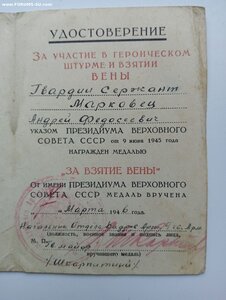 www.FORUMS-SU.com
УДОСТОВЕРЕНИЕ
ЗА УЧАСТИЕ В ГЕРОИЧЕСКОМ
ШТУРМЕ И ВЗЯТИИ
ВЕНЫ
Гвардии Сержант
Марковец
Андрей Федосеевич
УКАЗОМ ПРЕЗИДИУМА ВЕРХОВНОГО
СОВЕТА СССР от 9 июня 1945 года
НАГРАЖДЕН МЕДАЛЬЮ
„ЗА ВЗЯТИЕ ВЕНЫ"
От имени ПРЕЗИДИУМА ВЕРХОВНОГО
СОВЕТА СССР МЕДАЛЬ ВРУЧЕНА
Марта 1946 года
Начальник
(должность, воинское звание и подпись
М. П.
вручившего медаль)
майор